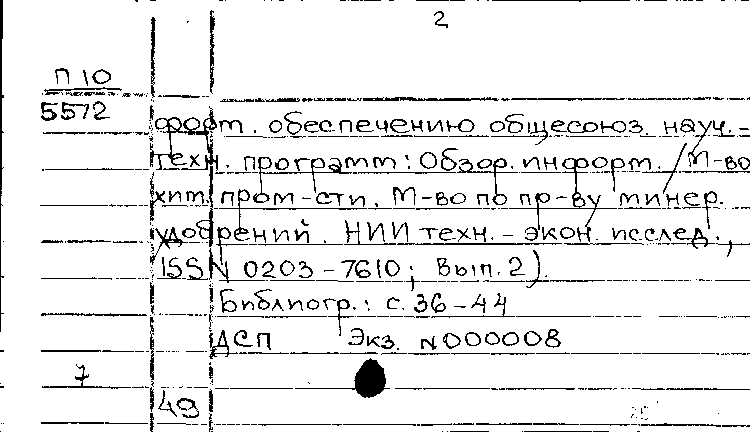 2
П 10
5572
форм. обеспечению общесоюз. науч.-
техн. программ: Обзор. информ. / М-во
хим. пром-сти, М-во по пр-ву минер.
удобрений. НИИ техн.-экон. исслед.,
ISSN 0203-7610; Вып. 2).
Библиогр.: с. 36-44
ДСП Экз. N000008
7
49